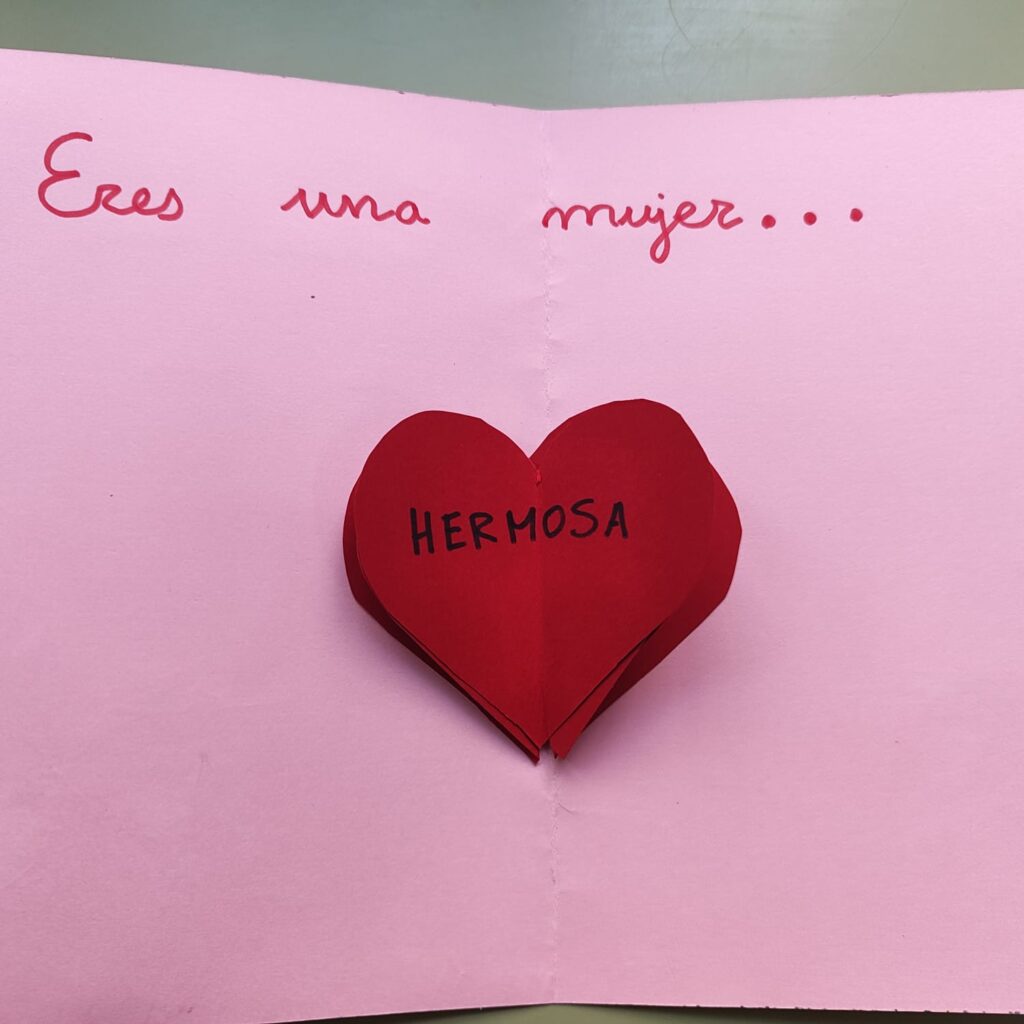 Eres una mujer...
HERMOSA